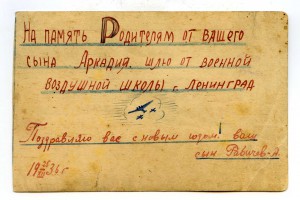 На память Родителям от вашего
сына Аркадия, шлю от военной
воздушной школы г. Ленинград
Поздравляю вас с новым годом! ваш
сын Равичев-А.
19 36 г